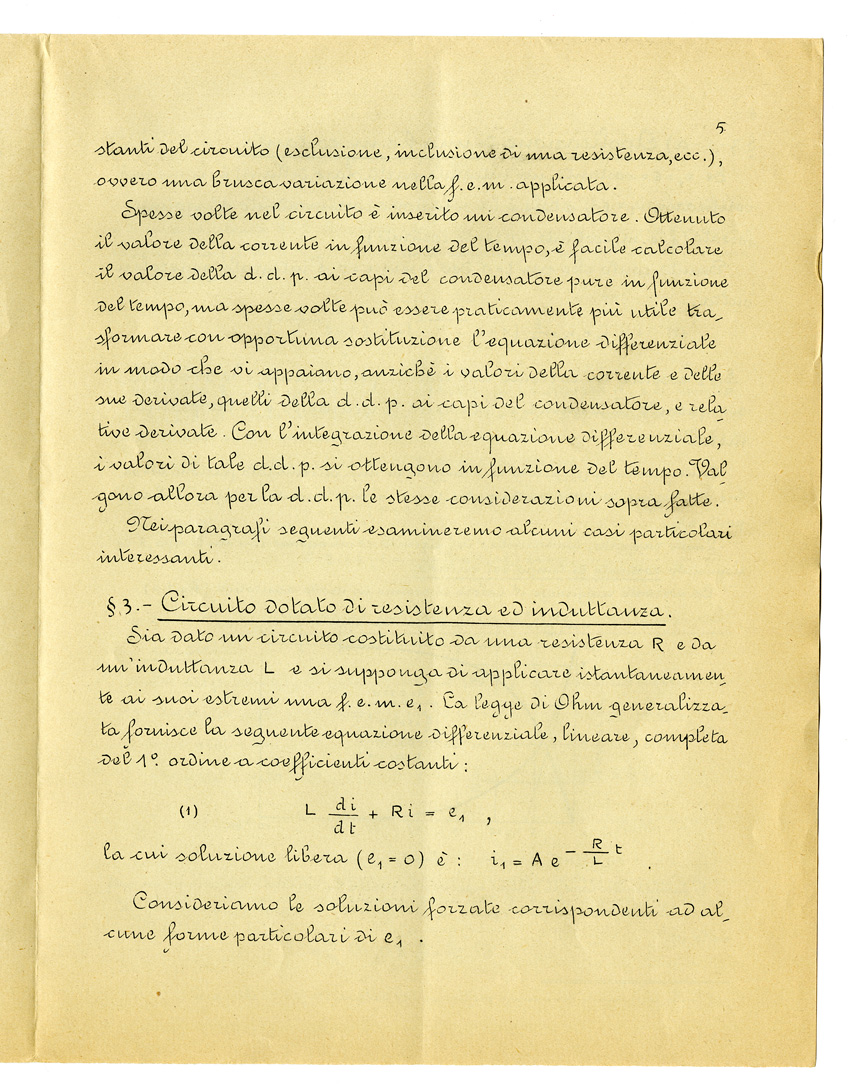 5
stanti del circuito (esclusione, inclusione di una resistenza, ecc.),
ovvero una brusca variazione nella f.e.m. applicata.
Spesse volte nel circuito è inserito un condensatore. Ottenuto
il valore della corrente in funzione del tempo, è facile calcolare
il valore della d.d.p. ai capi del condensatore pure in funzione
del tempo, ma spesse volte può essere praticamente più utile tra_
sformare con opportuna sostituzione l'equazione differenziale
in modo che vi appaiano, anzichè i valori della corrente e delle
sue derivate, quelli della d.d.p. ai capi del condensatore, e rela_
tive derivate. Con l'integrazione della equazione differenziale,
i valori di tale d.d.p. si ottengono in funzione del tempo. Val_
gono allora per la d.d.p. le stesse considerazioni sopra fatte.
Nei paragrafi seguenti esamineremo alcuni casi particolari
interessanti.
§ 3.- Circuito dotato di resistenza ed induttanza.
Sia dato un circuito costituito da una resistenza R e da
un'induttanza L e si supponga di applicare istantaneamen_
te ai suoi estremi una f.e.m. e₁. La legge di Ohm generalizza_
ta fornisce la seguente equazione differenziale, lineare, completa
del 1º ordine a coefficienti costanti:
(1) L di/dt + Ri = e₁ ,
la cui soluzione libera (e₁ = 0) è: i₁ = A e^(- R/L t) .
Consideriamo le soluzioni forzate corrispondenti ad al_
cune forme particolari di e₁ .